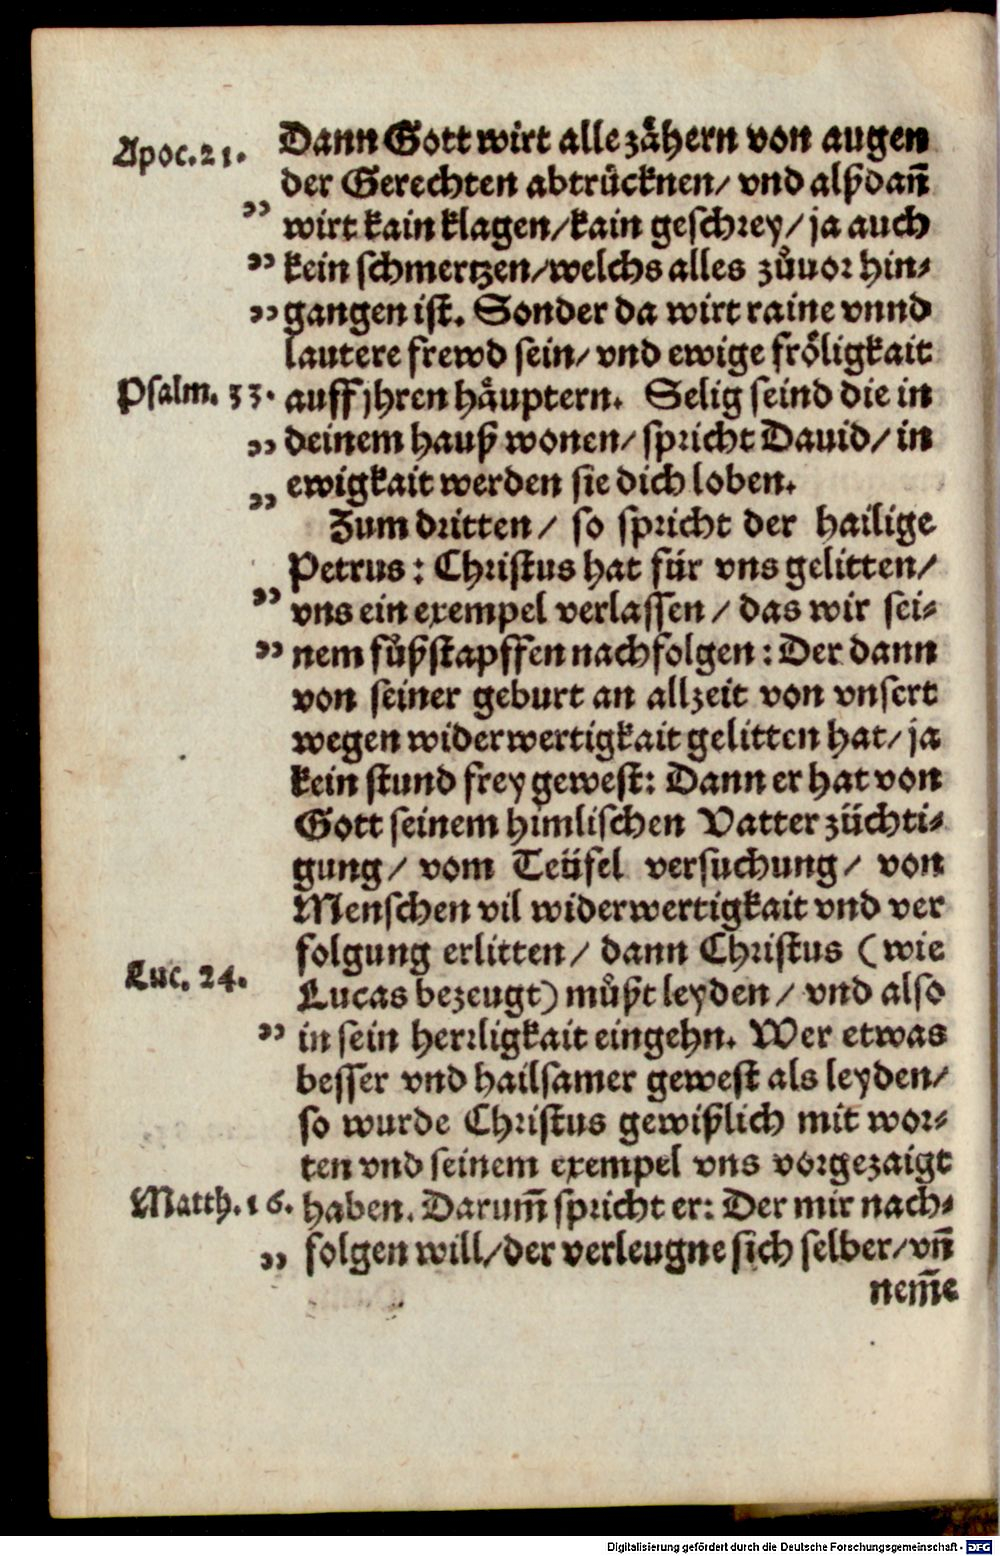 Apoc. 21. Dann Gott wirt alle zåhern von augen
der Gerechten abtrůcknen/ vnd alßdañ
” wirt kain klagen/kain geschrey/ ja auch
” kein schmertzen/welchs alles zůuor hin⸗
” gangen ist. Sonder da wirt raine vnnd
lautere frewd sein/ vnd ewige frőligkait
Psalm. 33. auff jhren håuptern. Selig seind die in
” deinem hauß wonen/ spricht Dauid/ in
” ewigkait werden sie dich loben.
Zum dritten/ so spricht der hailige
Petrus: Christus hat für vns gelitten/
” vns ein exempel verlassen/ das wir sei⸗
” nem fůßstapffen nachfolgen: Der dann
von seiner geburt an allzeit von vnsert
wegen widerwertigkait gelitten hat/ ja
kein stund frey gewest: Dann er hat von
Gott seinem himlischen Vatter züchti⸗
gung/ vom Teüfel versuchung/ von
Menschen vil widerwertigkait vnd ver
folgung erlitten/ dann Christus (wie
Luc. 24. Lucas bezeugt) můßt leyden/ vnd also
” in sein herrligkait eingehn. Wer etwas
besser vnd hailsamer gewest als leyden/
so wurde Christus gewißlich mit wor⸗
ten vnd seinem exempel vns vorgezaigt
Matth. 16. haben. Darum̃ spricht er: Der mir nach⸗
” folgen will/der verleugne sich selber/vñ
nem̃e
Digitalisierung gefördert durch die Deutsche Forschungsgemeinschaft - DFG